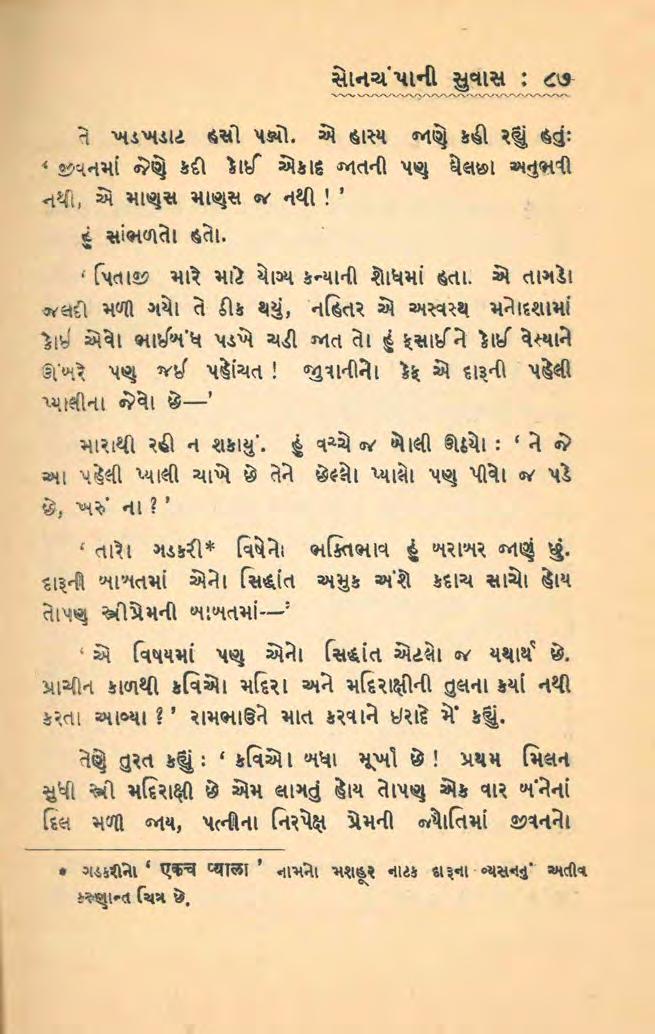 સોનચંપાની સુવાસ : ૮૭
તે ખડખડાટ હસી પડ્યો. એ હાસ્ય જાણે કહી રહ્યું હતુંઃ
‘ જીવનમાં જેણે કદી કોઈ એકાદ જાતની પણ ઘેલછા અનુભવી
નથી, એ માણસ માણસ જ નથી ! ’
હું સાંભળતો હતો.
‘ પિતાજી મારે માટે યોગ્ય કન્યાની શોધમાં હતા. એ તાગડો
જલદી મળી ગયો તે ઠીક થયું, નહિતર એ અસ્વસ્થ મનોદશામાં
કોઈ એવો ભાઈબંધ પડખે ચડી જાત તો હું ફસાઈને કોઈ વેસ્યાને
ઊંબરે પણ જઈ પહોંચત ! જુવાનીનો કેફ એ દારૂની પહેલી
પ્યાલીના જેવો છે—’
મારાથી રહી ન શકાયું. હું વચ્ચે જ બોલી ઊઠ્યો : ‘ ને જે
આ પહેલી પ્યાલી ચાખે છે તેને છેલ્લો પ્યાલો પણ પીવો જ પડે
છે, ખરું ના ? ’
‘ તારો ગડકરી* વિષેનો ભક્તિભાવ હું બરાબર જાણું છું.
દારૂની બાબતમાં એનો સિદ્ધાંત અમુક અંશે કદાચ સાચો હોય
તોપણ સ્ત્રીપ્રેમની બાબતમાં—’
‘ એ વિષયમાં પણ એનો સિદ્ધાંત એટલો જ યથાર્થ છે.
પ્રાચીન કાળથી કવિઓ મદિરા અને મદિરાક્ષીની તુલના કયાં નથી
કરતા આવ્યા ? ’ રામભાઉને માત કરવાને ઇરાદે મેં કહ્યું.
તેણે તુરત કહ્યું : ‘ કવિઓ બધા મૂર્ખા છે ! પ્રથમ મિલન
સુધી સ્ત્રી મદિરાક્ષી છે એમ લાગતું હોય તોપણ એક વાર બંનેનાં
દિલ મળી જાય, પત્નીના નિરપેક્ષ પ્રેમની જ્યોતિમાં જીવનનો
* ગડકરીનો ‘ एकच प्याला ’ નામનો મશહૂર નાટક દારૂના વ્યસનનું અતીવ
કરુણાન્ત ચિત્ર છે.